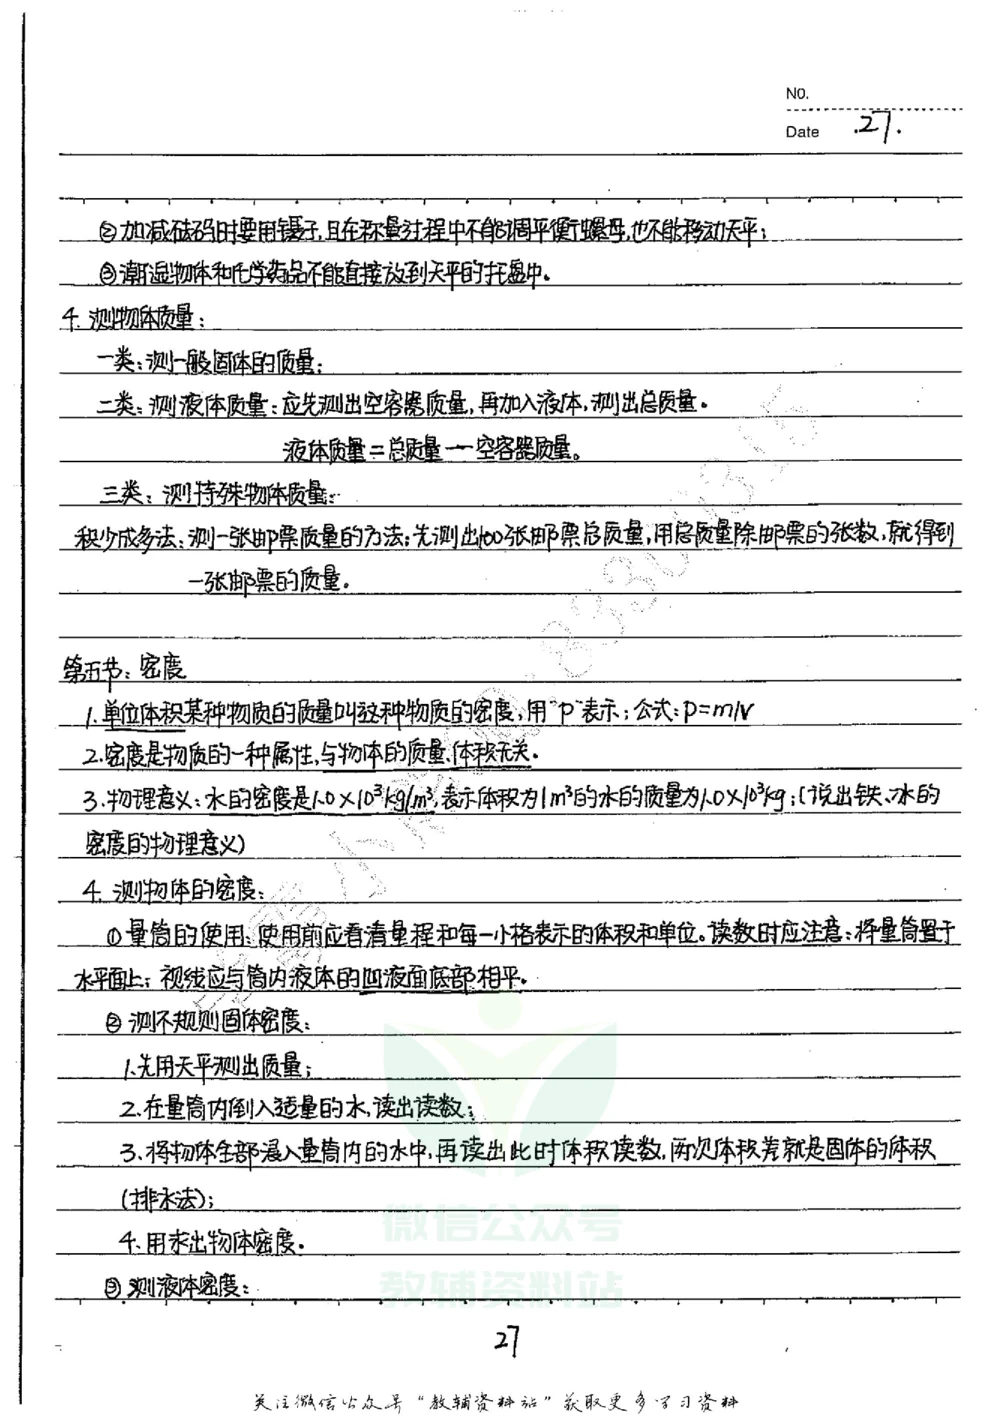 NO.
Date 27.
②加减砝码时要用镊子,且在称量过程中不能调平衡螺母,也不能移动天平;
③潮湿物体和化学药品不能直接放到天平的托盘中。
4. 测物体质量:
一类:测一般固体的质量;
二类:测液体质量:应先测出空容器质量,再加入液体,测出总质量。
液体质量=总质量一空容器质量。
三类:测特殊物体质量:
积少成多法:测一张邮票质量的方法:先测出100张邮票总质量,用总质量除邮票的张数,就得到
一张邮票的质量。
第五节:密度
1.单位体积某种物质的质量叫这种物质的密度,用"ρ"表示;公式:ρ=m/V
2.密度是物质的一种属性,与物体的质量、体积无关。
3.物理意义:水的密度是1.0×10³kg/m³,表示体积为1m³的水的质量为1.0×10³kg;(说出铁、冰的
密度的物理意义)
4. 测物体的密度:
①量筒的使用:使用前应看清量程和每一小格表示的体积和单位。读数时应注意:将量筒置于
水平面上;视线应与筒内液体的凹液面底部相平。
②测不规则固体密度:
1.先用天平测出质量;
2.在量筒内倒入适量的水,读出读数;
3.将物体全部浸入量筒内的水中,再读出此时体积读数,两次体积差就是固体的体积
(排水法);
4.用求出物体密度。
③测液体密度:
微信公众号
教辅资料站
27
关注微信公众号"教辅资料站"获取更多学习资料